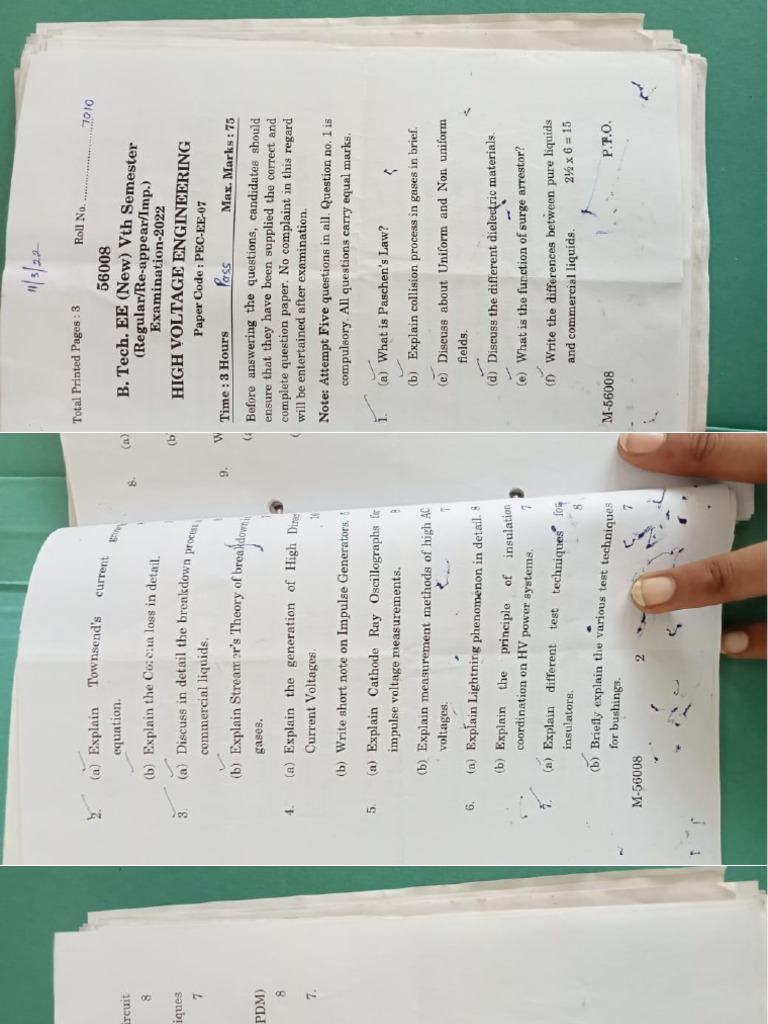 11/3/22
Total Printed Pages : 3 Roll No. .................... 7010
56008
B. Tech. EE (New) Vth Semester
(Regular/Re-appear/Imp.)
Examination-2022
HIGH VOLTAGE ENGINEERING
Paper Code : PEC-EE-07
Time : 3 Hours Pass Max. Marks : 75
Before answering the questions, candidates should
ensure that they have been supplied the correct and
complete question paper. No complaint in this regard
will be entertained after examination.
Note: Attempt Five questions in all. Question no. 1 is
compulsory. All questions carry equal marks.
1. (a) What is Paschen's Law?
(b) Explain collision process in gases in brief.
(c) Discuss about Uniform and Non uniform
fields.
(d) Discuss the different dielectric materials.
(e) What is the function of surge arrestor?
(f) Write the differences between pure liquids
and commercial liquids. 2½ x 6 = 15
M-56008 P.T.O.
2. (a) Explain Townsend's current
equation.
(b) Explain the Corona loss in detail.
3. (a) Discuss in detail the breakdown
commercial liquids.
(b) Explain Streamer's Theory of breakdown
gases.
4. (a) Explain the generation of High
Current Voltages.
(b) Write short note on Impulse Generators.
5. (a) Explain Cathode Ray Oscillographs for
impulse voltage measurements. 8
(b) Explain measurement methods of high AC
voltages. 7
6. (a) Explain Lightning phenomenon in detail. 8
(b) Explain the principle of insulation
coordination on HV power systems. 7
7. (a) Explain different test techniques for
insulators. 8
(b) Briefly explain the various test techniques
for bushings. 7
M-56008 2
8. (a)
(b
9. W
(a
(
rcuit
8
iques
7
PDM)
8
7.